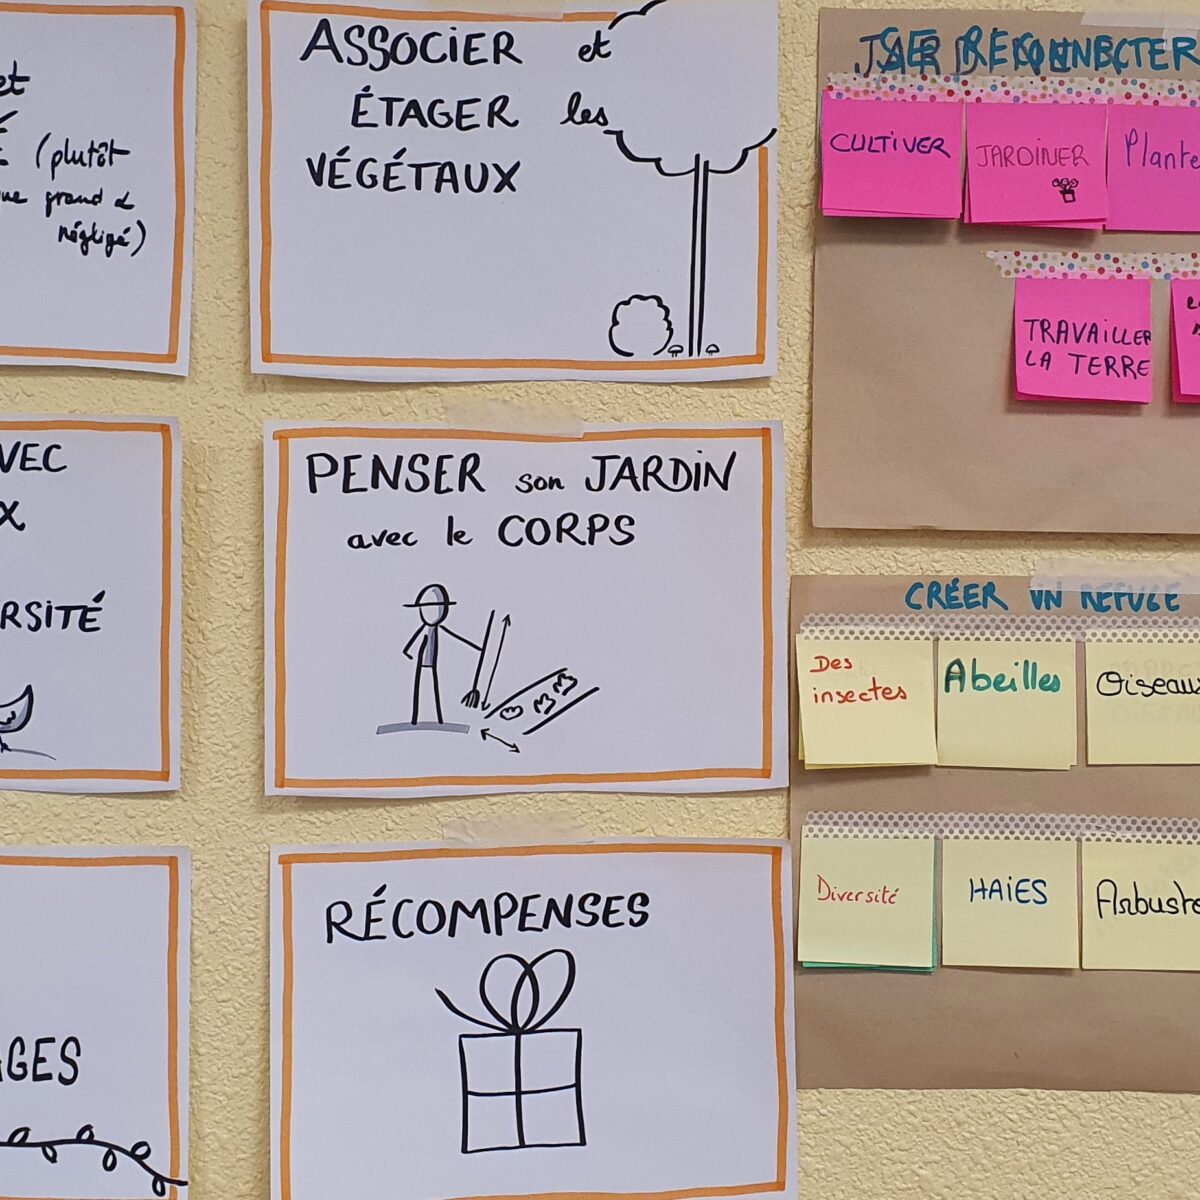 et
É (plutôt
que grand &
négligé)
ASSOCIER et
ÉTAGER les
VÉGÉTAUX
SE RECONNECTER
CULTIVER
JARDINER
Plante
TRAVAILLER
LA TERRE
VEC
X
RSITÉ
PENSER son JARDIN
avec le CORPS
CRÉER UN REFUGE
Des
insectes
Abeilles
Oiseaux
Diversité
HAIES
Arbuste
AGES
RÉCOMPENSES